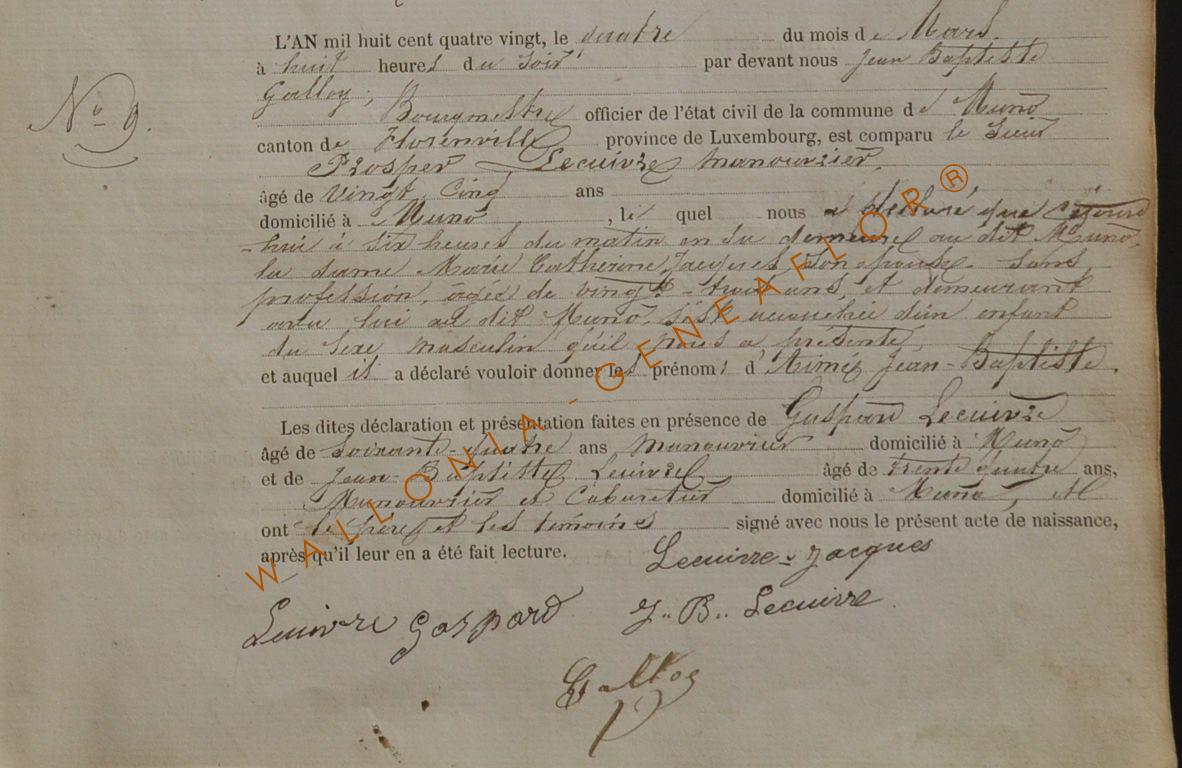 L'AN mil huit cent quatre vingt, le quatre du mois de Mars.
à huit heures du soir par devant nous Jean Baptiste
Galloy,
N° 9.
Bourgmestre officier de l'état civil de la commune de Muno
canton de Florenville province de Luxembourg, est comparu le Sieur
Prosper Lecuivre manouvrier,
âgé de vingt cinq ans
domicilié à Muno, le quel nous a déclaré que cejourd
-hui à six heures du matin en sa demeure au dit Muno,
la dame Marie Catherine Jacques, son épouse, sans
profession, agée de vingt-trois ans, et demeurant
avec lui au dit Muno, s'est accouchée d'un enfant
du sexe masculin qu'il nous a présenté,
et auquel il a déclaré vouloir donner les prénoms d'Aimé Jean-Baptiste.
Les dites déclaration et présentation faites en présence de Gaspard Lecuivre
âgé de soixante-quatre ans manouvrier domicilié à Muno
et de Jean-Baptiste Lecuivre âgé de trente quatre ans,
Manouvrier et Cabaretier domicilié à Muno, et
ont le père et les témoins signé avec nous le présent acte de naissance,
après qu'il leur en a été fait lecture.
Lecuivre-Jacques
Lecuivre Gaspard J. B. Lecuivre
Galloy
WALLONIA-GENEAFLOR®